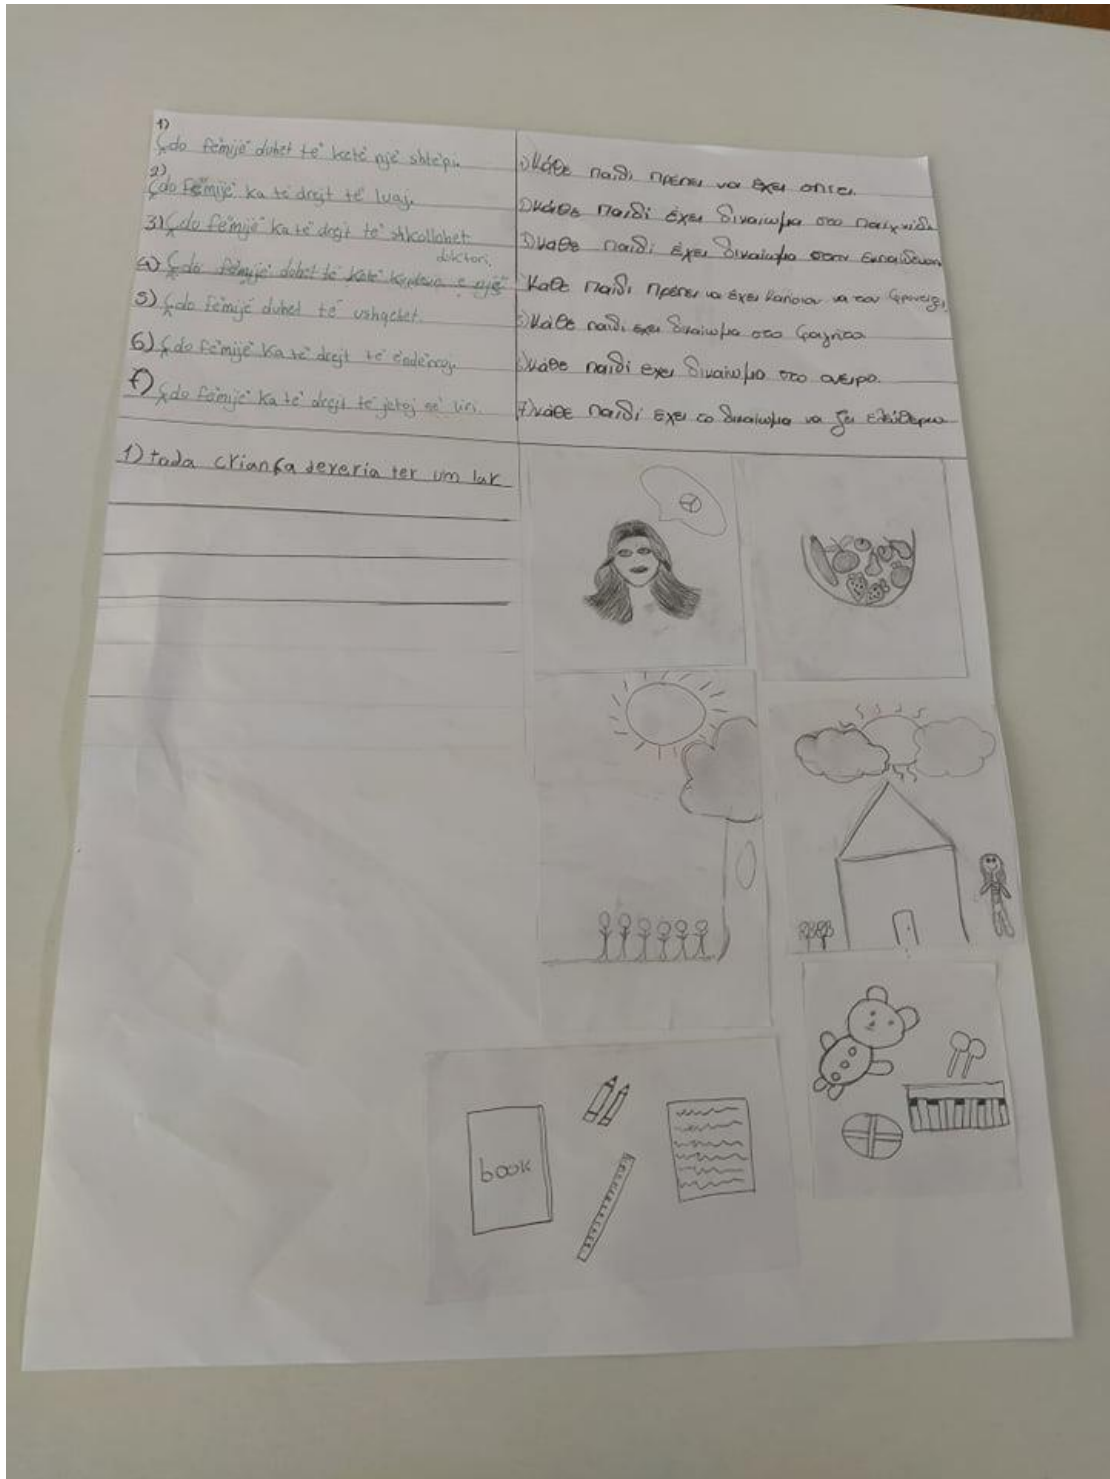 1)
Çdo fëmijë duhet të ketë një shtëpi.
2)
Çdo fëmijë ka të drejt të luaj.
3) Çdo fëmijë ka të drejt të shkollohet.
doktori.
4) Çdo fëmijë duhet të ketë e një
5) Çdo fëmijë duhet të ushqehet.
6) Çdo fëmijë ka të drejt të ëndërroj.
7) Çdo fëmijë ka të drejt të jetoj në liri.
1) Κάθε παιδί πρέπει να έχει σπίτι.
2) Κάθε παιδί έχει δικαίωμα στο παιχνίδι
3) Κάθε παιδί έχει δικαίωμα στην εκπαίδευση
Κάθε παιδί πρέπει να έχει κάποιον να τον φροντίζει
5) Κάθε παιδί έχει δικαίωμα στο φαγητό
6) Κάθε παιδί έχει δικαίωμα στο όνειρο.
7) Κάθε παιδί έχει το δικαίωμα να ζει ελεύθερο
1) toda criança deveria ter um lar
book